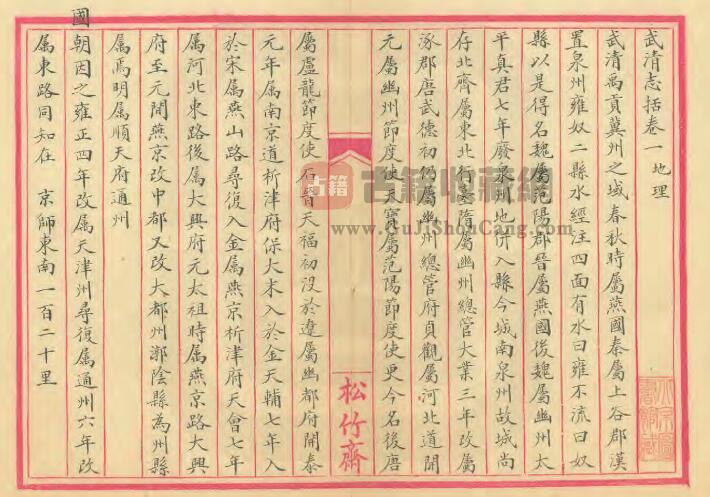 武清志括卷一 地理
武清禹貢冀州之域春秋時屬燕國秦屬上谷郡漢
置泉州雍奴二縣水經注四面有水曰雍不流曰奴
縣以是得名魏屬范陽郡晉屬燕國後魏屬幽州太
平真君七年廢泉州地併入縣今城南泉州故城尚
存北齊屬東北行臺隋屬幽州總管大業三年改屬
涿郡唐武德初仍屬幽州總管府貞觀屬河北道開
元屬幽州節度使天寶屬范陽節度使更今名後唐
松竹齋
屬盧龍節度使石晉天福初沒於遼屬幽都府開泰
元年属南京道析津府保大末入於金天輔七年入
於宋属燕山路尋復入金属燕京析津府天會七年
属河北東路後属大興府元太祖時属燕京路大興
府至元間燕京改中都又改大都州漷陰縣為州縣
属焉明属順天府通州
國朝因之雍正四年改属天津州尋復属通州六年改
属東路同知在 京師東南一百二十里
古籍
古籍收藏網
www.GuJiShouCang.com